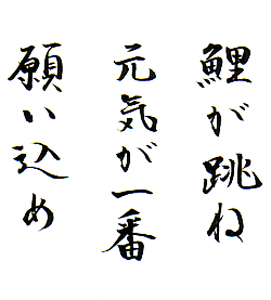 鯉が跳ね
元気が一番
願い込め